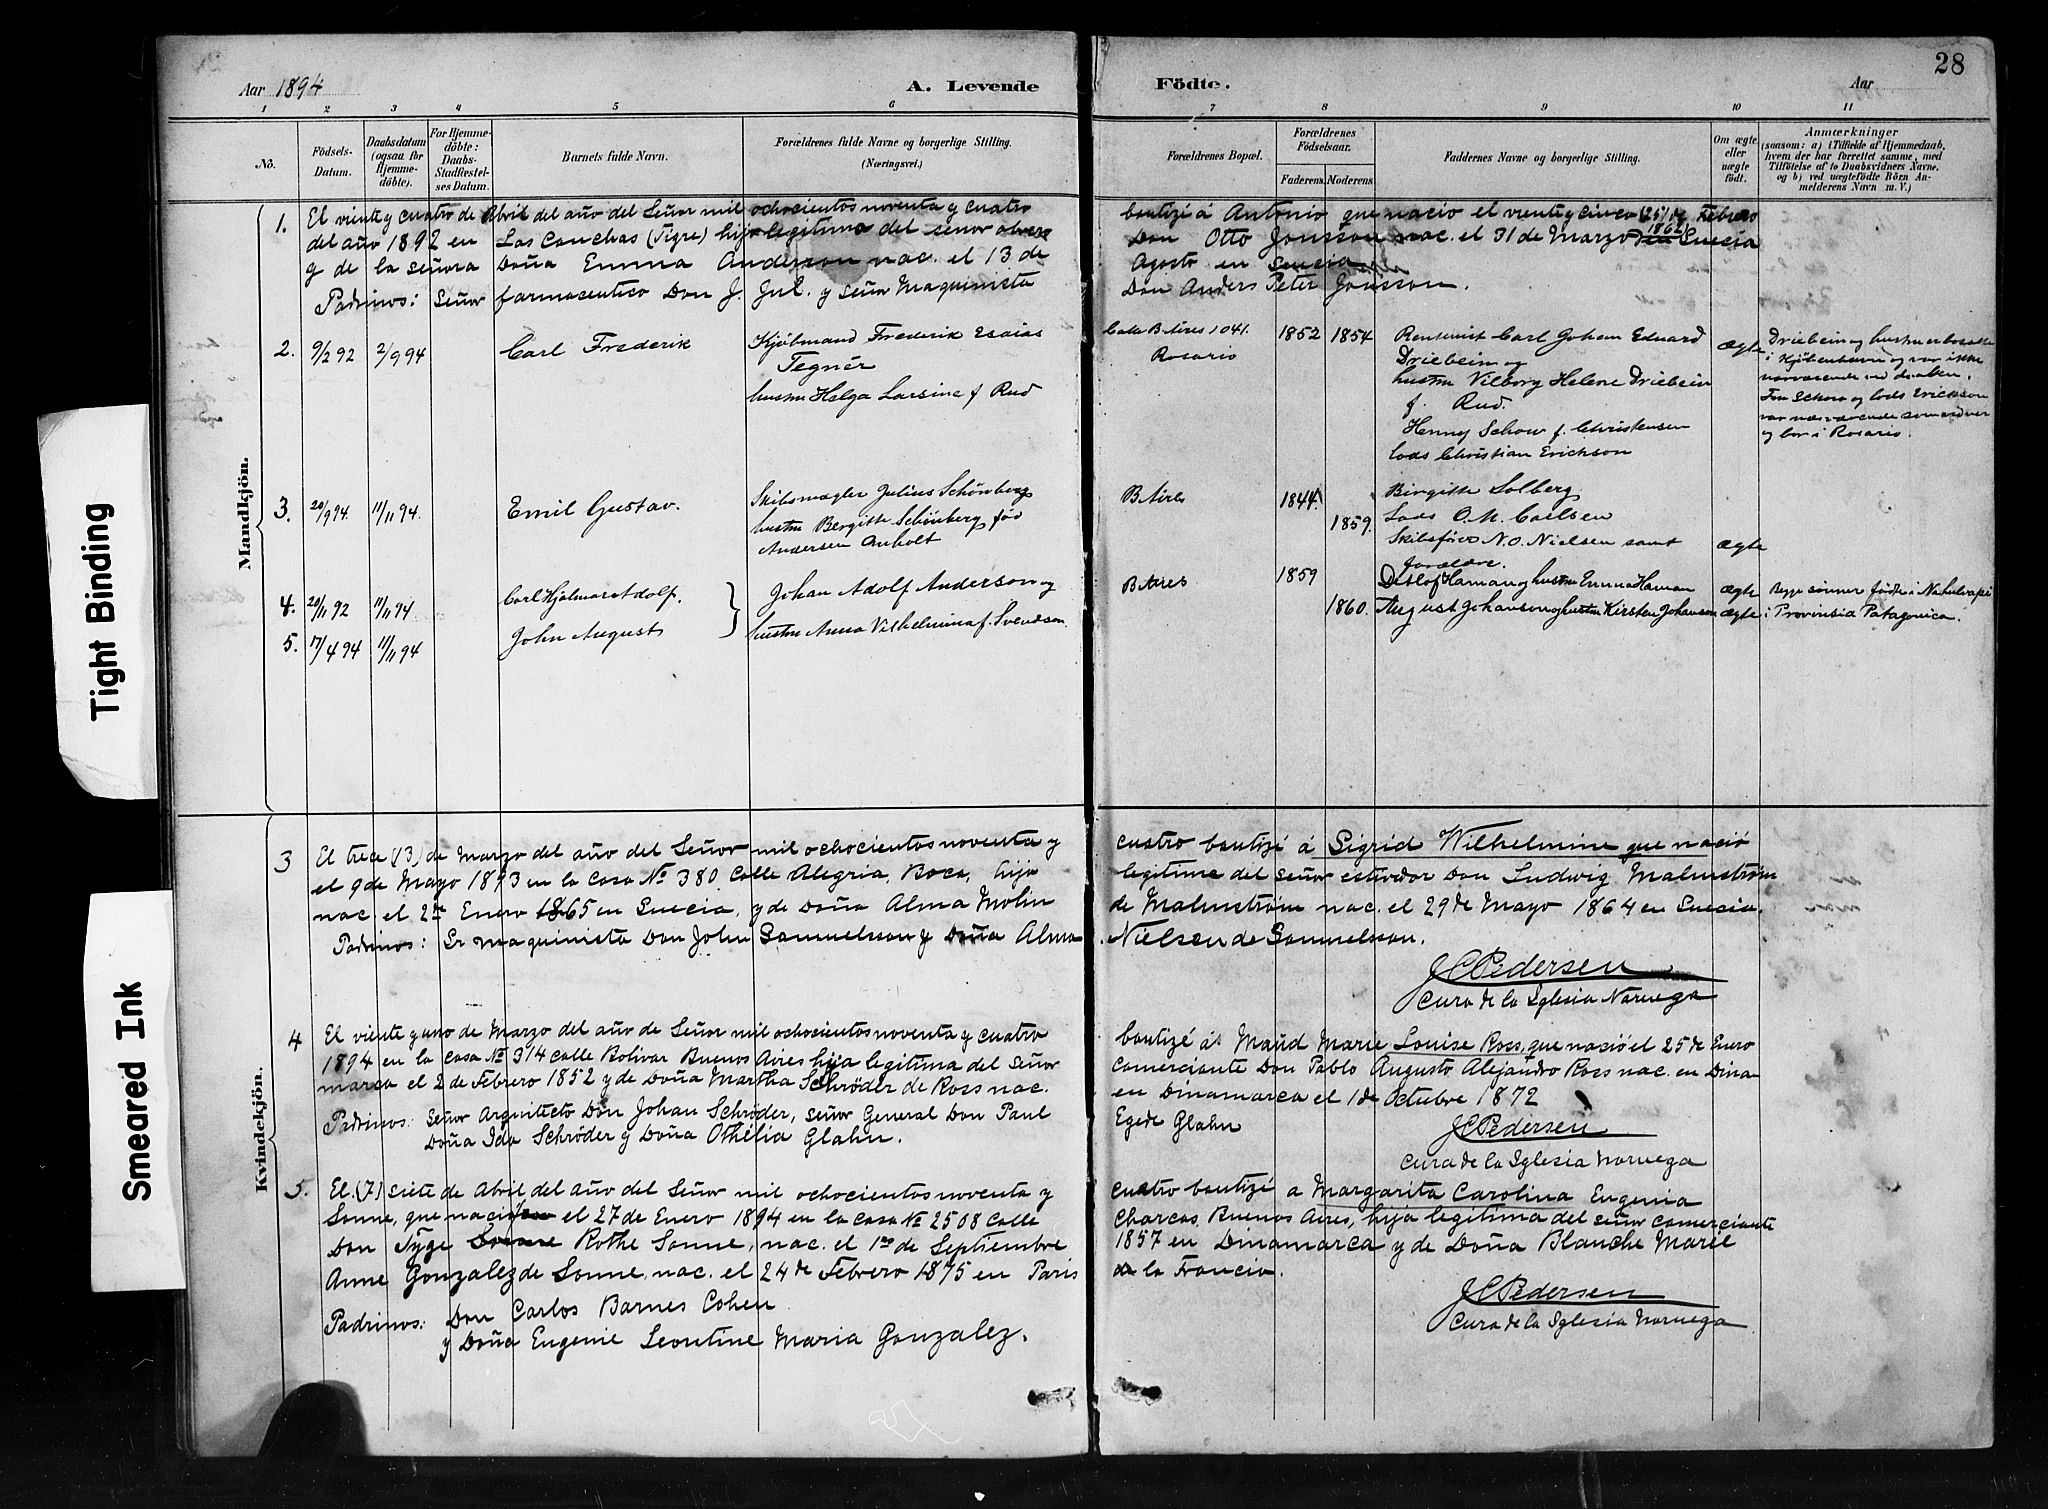 28
Aar 1894 A. Levende Födte. Aar
1 2 3 4 5 6 7 8 9 10 11
Nô. Födsels-Datum. Daabsdatum (ogsaa for Hjemme-döbte). For Hjemme-döbte: Daabs-Stadfæstel-ses Datum. Barnets fulde Navn. Forældrenes fulde Navne og borgerlige Stilling. (Næringsvei.) Forældrenes Bopæl. Forældrenes Födselsaar. Faderens. Moderens. Faddernes Navne og borgerlige Stilling. Om ægte eller uægte födt. Anmærkninger (saasom: a) i Tilfælde af Hjemmedaab, hvem der har forrettet samme, med Tilföielse af to Daabsvidners Navne, og b) ved uægtefödte Börn An-melderens Navn m. V.)
Mandkjön.
1. El viente y cuatro de Abril del año del Señor mil ochocientos noventa y cuatro bautizé á Antonio que nacio el viente y cinco (25) de Febrero
del año 1892 en Las Conchas (Tigre) hijo legitimo del señor Don Otto Jonsson nac. el 31 de Marzo 1862 en Suecia
y de la señora Doña Emma Anderson nac. el 13 de Agosto en Suecia
Padrinos: Señor farmaceutico Don J. Jul. y señor Maquinista Don Anders Peter Jonsson.
2. 9/2 92 2/9 94 Carl Frederik Kjöbmand Frederik Esaias Calle B. Aires 1041. 1852 1854 Rentenist Carl Johan Eduard ægte Driebein og hustru er bosatte
Tegnér Rosario Driebein og i Kjöbenhavn og var ikke
hustru Helga Larsine f. Rud hustru Vilborg Helene Driebein nærværende ved daaben.
f. Rud. Fru Schow og Lods Erickson
Henny Schow f. Christensen var nærværende som
Lods Christian Erickson og bor i Rosario.
3. 20/9 94. 11/11 94. Emil Gustav. Skibsmægler Julius Schönberg B. Aires 1844. Birgitte Solberg
hustru Bergitte Schönberg föd 1859. Lods O. M. Carlsen
Andersen Anholt Skibsförer N. O. Nielsen samt ægte
Forældre.
4. 20/11 92 11/11 94. Carl Hjalmar Adolf. } Johan Adolf Anderson og B. Aires 1859 Detlof Haman og hustru Emma Haman ægte Begge sönner födte i
5. 17/4 94 11/11 94 John August hustru Anna Vilhelmina f. Svendsen 1860. August Johanson og hustru Kirsten Johanson ægte i Provinsia Patagonica.
Kvindekjön.
3 El trece (13) de Marzo del año del Señor mil ochocientos noventa y cuatro bautizé á Sigrid Wilhelmine que nació
el 9 de Mayo 1893 en la casa No 380 Calle Alegria, Boca, hija legitime del señor estivador Don Ludwig Malmström
nac. el 2de Enero 1865 en Suecia, y de Doña Alma Molin de Malmström nac. el 29 de Mayo 1864 en Suecia.
Padrinos: Sr maquinista Don John Samuelsson y Doña Alma Nielsen de Sammelsson.
J C Pedersen
Cura de la Iglesia Noruega
4 El viente y uno de Marzo del año de Señor mil ochocientos noventa y cuatro bautizé á Maud Marie Louise Ross, que nació el 25 de Enero
1894 en la casa No 314 calle Bolivar Buenos Aires hija legitima del Señor comerciante Don Pablo Augusto Alejandro Ross nac. en Dina-
marca el 2 de Febrero 1852 y de Doña Martha Schröder de Ross nac. en Dinamarca el 1 de Octubre 1872
Padrinos: Señor Arquitecto Don Johan Schröder, señor General Don Paul Egede Glahn
Doña Ida Schröder y Doña Othélia Glahn.
J C Pedersen
Cura de la Iglesia Noruega
5. El (7) siete de Abril del año del Señor mil ochocientos noventa y cuatro bautizé a Margarita Carolina Eugenia
Sonne, que nació el 27 de Enero 1894 en la casa No 2508 Calle Charcas, Buenos Aires, hija legitima del señor comerciante
Don Tyge Rothe Sonne, nac. el 1ro de Septiembre 1857 en Dinamarca y de Doña Blanche Marie
Anne Gonzalez de Sonne, nac. el 24 de Febrero 1875 en Paris de la Francia.
Padrinos: Don Carlos Barnes Cohen
y Doña Eugenie Leontine Maria Gonzalez.
J C Pedersen
Cura de la Iglesia Noruega
Tight Binding
Smeared Ink